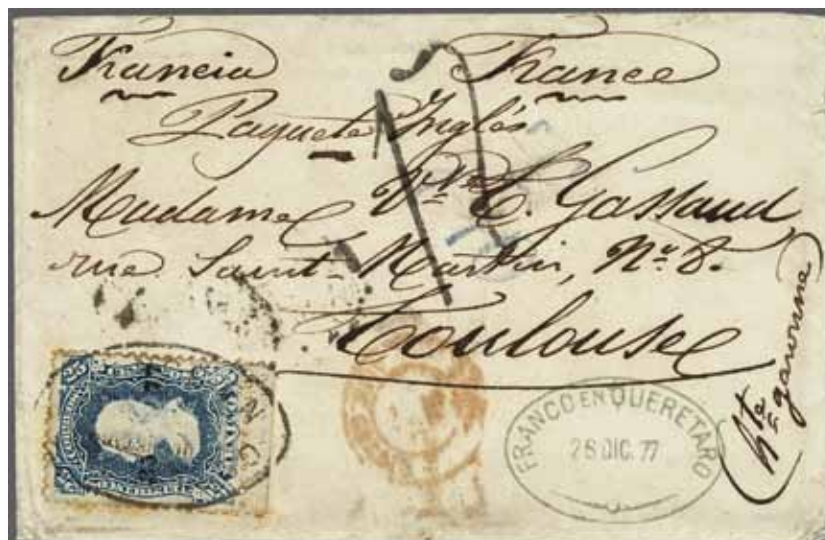 Francia France
Paquete Inglés
Madame Vve C. Gassaud,
rue Saint-Martin, No 8.
Toulouse
Hte garonne
25 25
FRANCO EN QUERETARO
26 DIC. 77